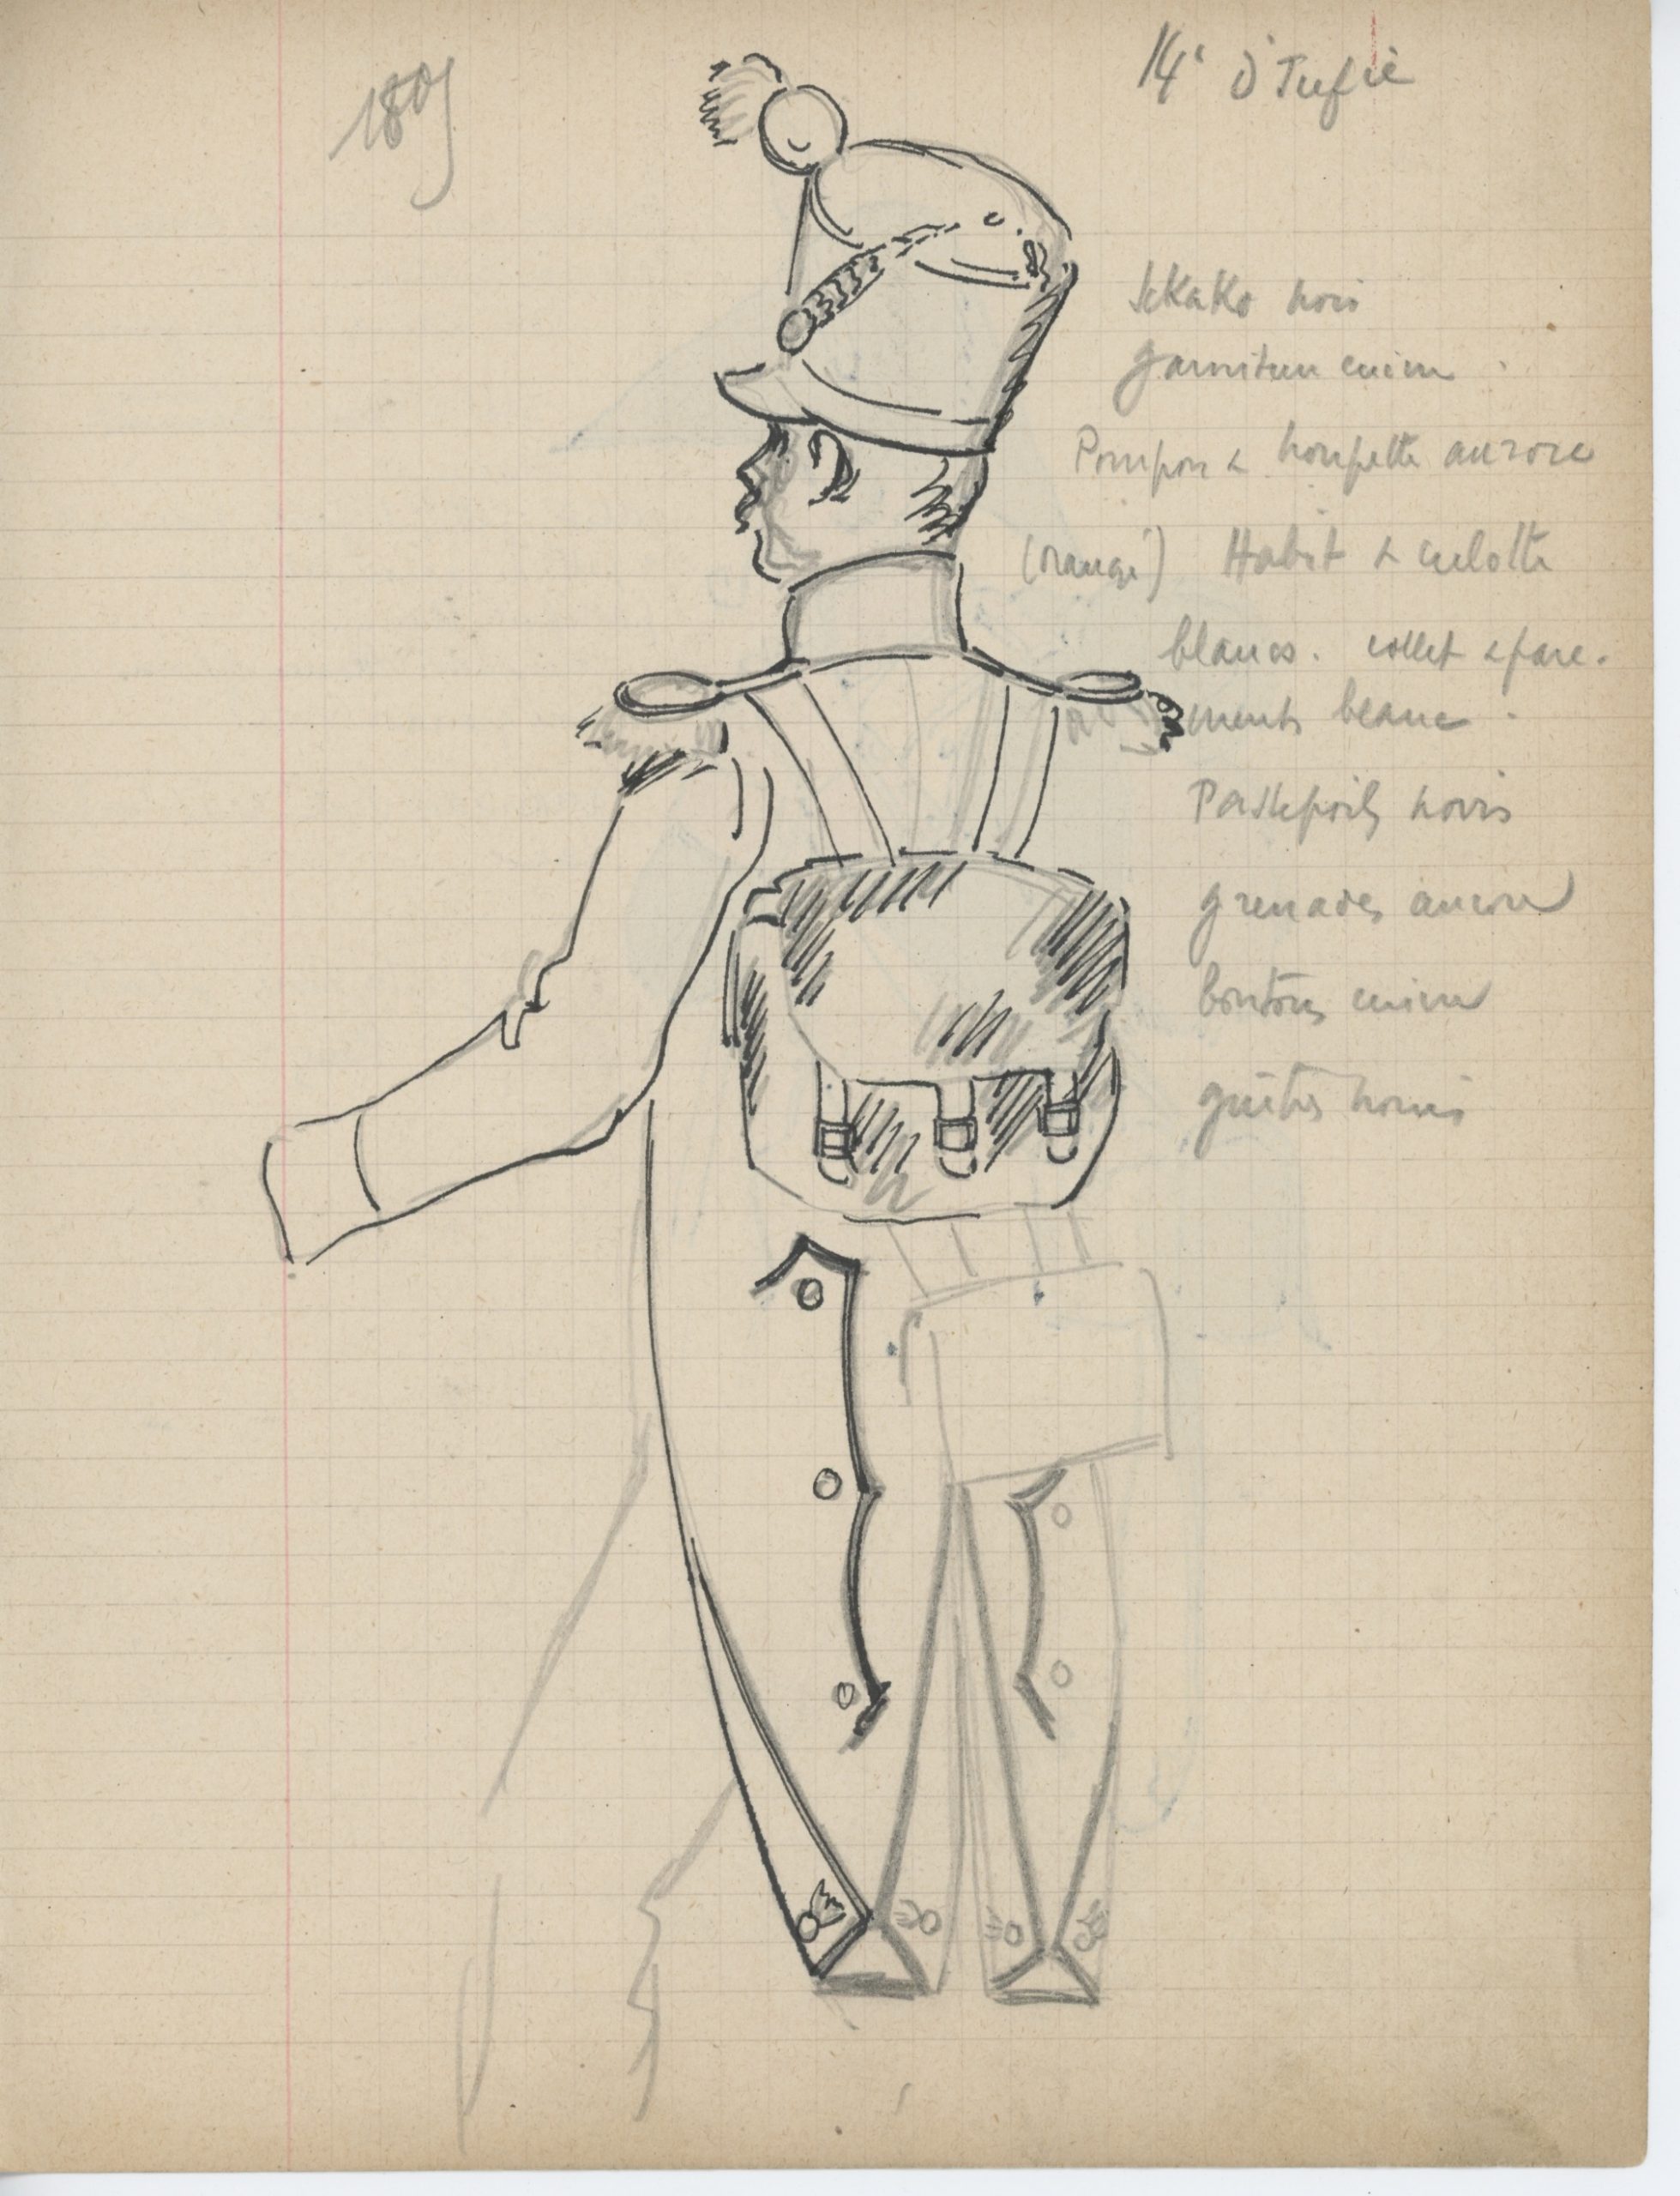 180
14e d'Infie
Schako noir
garniture cuivre
Pompon & houpette aurore
(orangé) Habit & culotte
blancs. collet & pare-
ments blanc.
Passepoils noirs
grenades aurore
boutons cuivre
guêtres noires